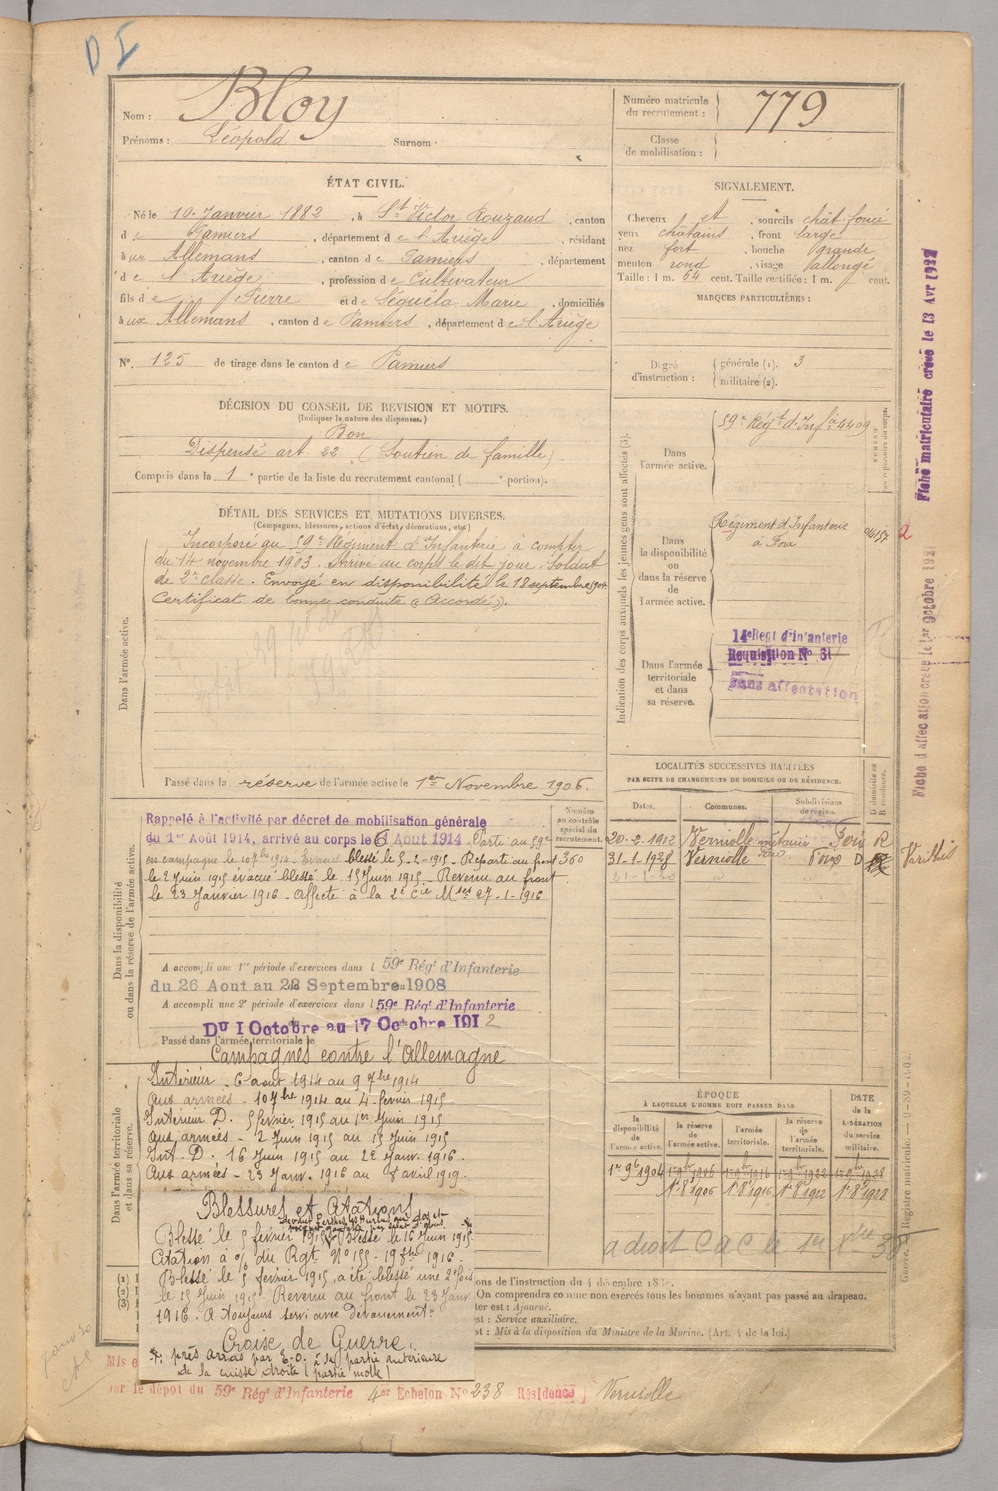 D I
Nom : Bloy
Prénoms : Léopold Surnom :
Numéro matricule du recrutement : 779
Classe de mobilisation :
ÉTAT CIVIL.
Né le 10 Janvier 1882, à St Victor Rouzaud, canton
d e Pamiers, département d e l'Ariège, résidant
à ux Allemans, canton d e Pamiers, département
d e l'Ariège, profession d e Cultivateur
fils d e Pierre et d e Séguéla Marie, domiciliés
à ux Allemans, canton d e Pamiers, département d e l'Ariège
N° 125 de tirage dans le canton d e Pamiers
SIGNALEMENT.
Cheveux et sourcils chât. foncé
yeux châtains, front large
nez fort, bouche grande
menton rond, visage allongé
Taille : 1 m. 64 cent. Taille rectifiée : 1 m. cent.
MARQUES PARTICULIÈRES :
Degré d'instruction : générale (1). 3
militaire (2).
DÉCISION DU CONSEIL DE REVISION ET MOTIFS.
(Indiquer la nature des dispenses.)
Bon
Dispensé art. 22 (Soutien de famille)
Compris dans la 1e partie de la liste du recrutement cantonal ( e portion).
DÉTAIL DES SERVICES ET MUTATIONS DIVERSES.
(Campagnes, blessures, actions d'éclat, décorations, etc.)
Dans l'armée active.
Incorporé au 59e Régiment d'Infanterie à compter
du 14 novembre 1903. Arrivé au corps le dit jour. Soldat
de 2e classe. Envoyé en disponibilité le 18 septembre 1904.
Certificat de bonne conduite « Accordé ».
Passé dans la réserve de l'armée active le 1er Novembre 1906.
Indication des corps auxquels les jeunes gens sont affectés (3).
Dans l'armée active.
59e Régt d'Infie 4409
Dans la disponibilité ou dans la réserve de l'armée active.
Régiment d'Infanterie
à Foix
2
Dans l'armée territoriale et dans sa réserve.
14e Regt d'Infanterie
Requisition N° 31
Sans affectation
Fiche matriculaire créée le 13 Avr 1922
LOCALITÉS SUCCESSIVES HABITÉES
PAR SUITE DE CHANGEMENTS DE DOMICILE OU DE RÉSIDENCE.
Dates. Communes. Subdivisions de région. D domicile ou R résidence.
20-2-1912 Verniolle Foix R
31-1-1928 Verniolle Foix D
Varilhes
Dans la disponibilité ou dans la réserve de l'armée active.
Numéro au contrôle spécial du recrutement.
360
Rappelé à l'activité par décret de mobilisation générale
du 1er Août 1914, arrivé au corps le 6 Aout 1914. Parti au 59e
en campagne le 10 7bre 1914. Evacué blessé le 5-2-1915 - Reparti au front
le 2 Juin 1915 évacué blessé le 15 Juin 1915 - Revenu au front
le 23 Janvier 1916 - Affecté à la 2e Cie Mses 27-1-1916
A accompli une 1re période d'exercices dans l 59e Régt d'Infanterie
du 26 Aout au 22 Septembre 1908
A accompli une 2e période d'exercices dans l 59e Régt d'Infanterie
Du 1 Octobre au 17 Octobre 1912
Passé dans l'armée territoriale le
Dans l'armée territoriale et dans sa réserve.
Campagnes contre l'Allemagne
Intérieur - 6 aout 1914 au 9 7bre 1914
Aux armées - 10 7bre 1914 au 4 février 1915
Intérieur D. 5 février 1915 au 1er Juin 1915
Aux armées - 2 Juin 1915 au 15 Juin 1915
Int. D. 16 Juin 1915 au 22 Janv. 1916.
Aux armées - 23 Janv. 1916 au 8 avril 1919.
Blessures et Citations
Blessé le 5 février 1915 Blessé le 16 Juin 1915
Citation à l'o/ du Rgt N° 155 - 19 1916
Blessé le 5 février 1915, a été blessé une 2e fois
le 15 Juin 1915. Revenu au front le 23 Janv.
1916. A toujours servi avec Dévouement.
Croix de Guerre.
près Arras par E.O. à la partie antérieure
de la cuisse droite (partie molle)
ÉPOQUE
À LAQUELLE L'HOMME DOIT PASSER DANS
la disponibilité de l'armée active.
la réserve de l'armée active.
l'armée territoriale.
la réserve de l'armée territoriale.
DATE de la LIBÉRATION du service militaire.
1er 9b 1904 1er 9b 1906 1er 9b 1916 1er 9b 1922 1er 9b 1928
1er 8b 1906 1er 8b 1916 1er 8b 1922 1er 8b 1928
a droit C a C le 1er
ons de l'instruction du 4 décembre 18
On comprendra comme non exercés tous les hommes n'ayant pas passé au drapeau.
ter est : Ajourné.
est : Service auxiliaire.
st : Mis à la disposition du Ministre de la Marine. (Art. 4 de la loi.)
par le dépôt du 59e Régt d'Infanterie 4er Echelon N° 238 Résidence) Verniolle